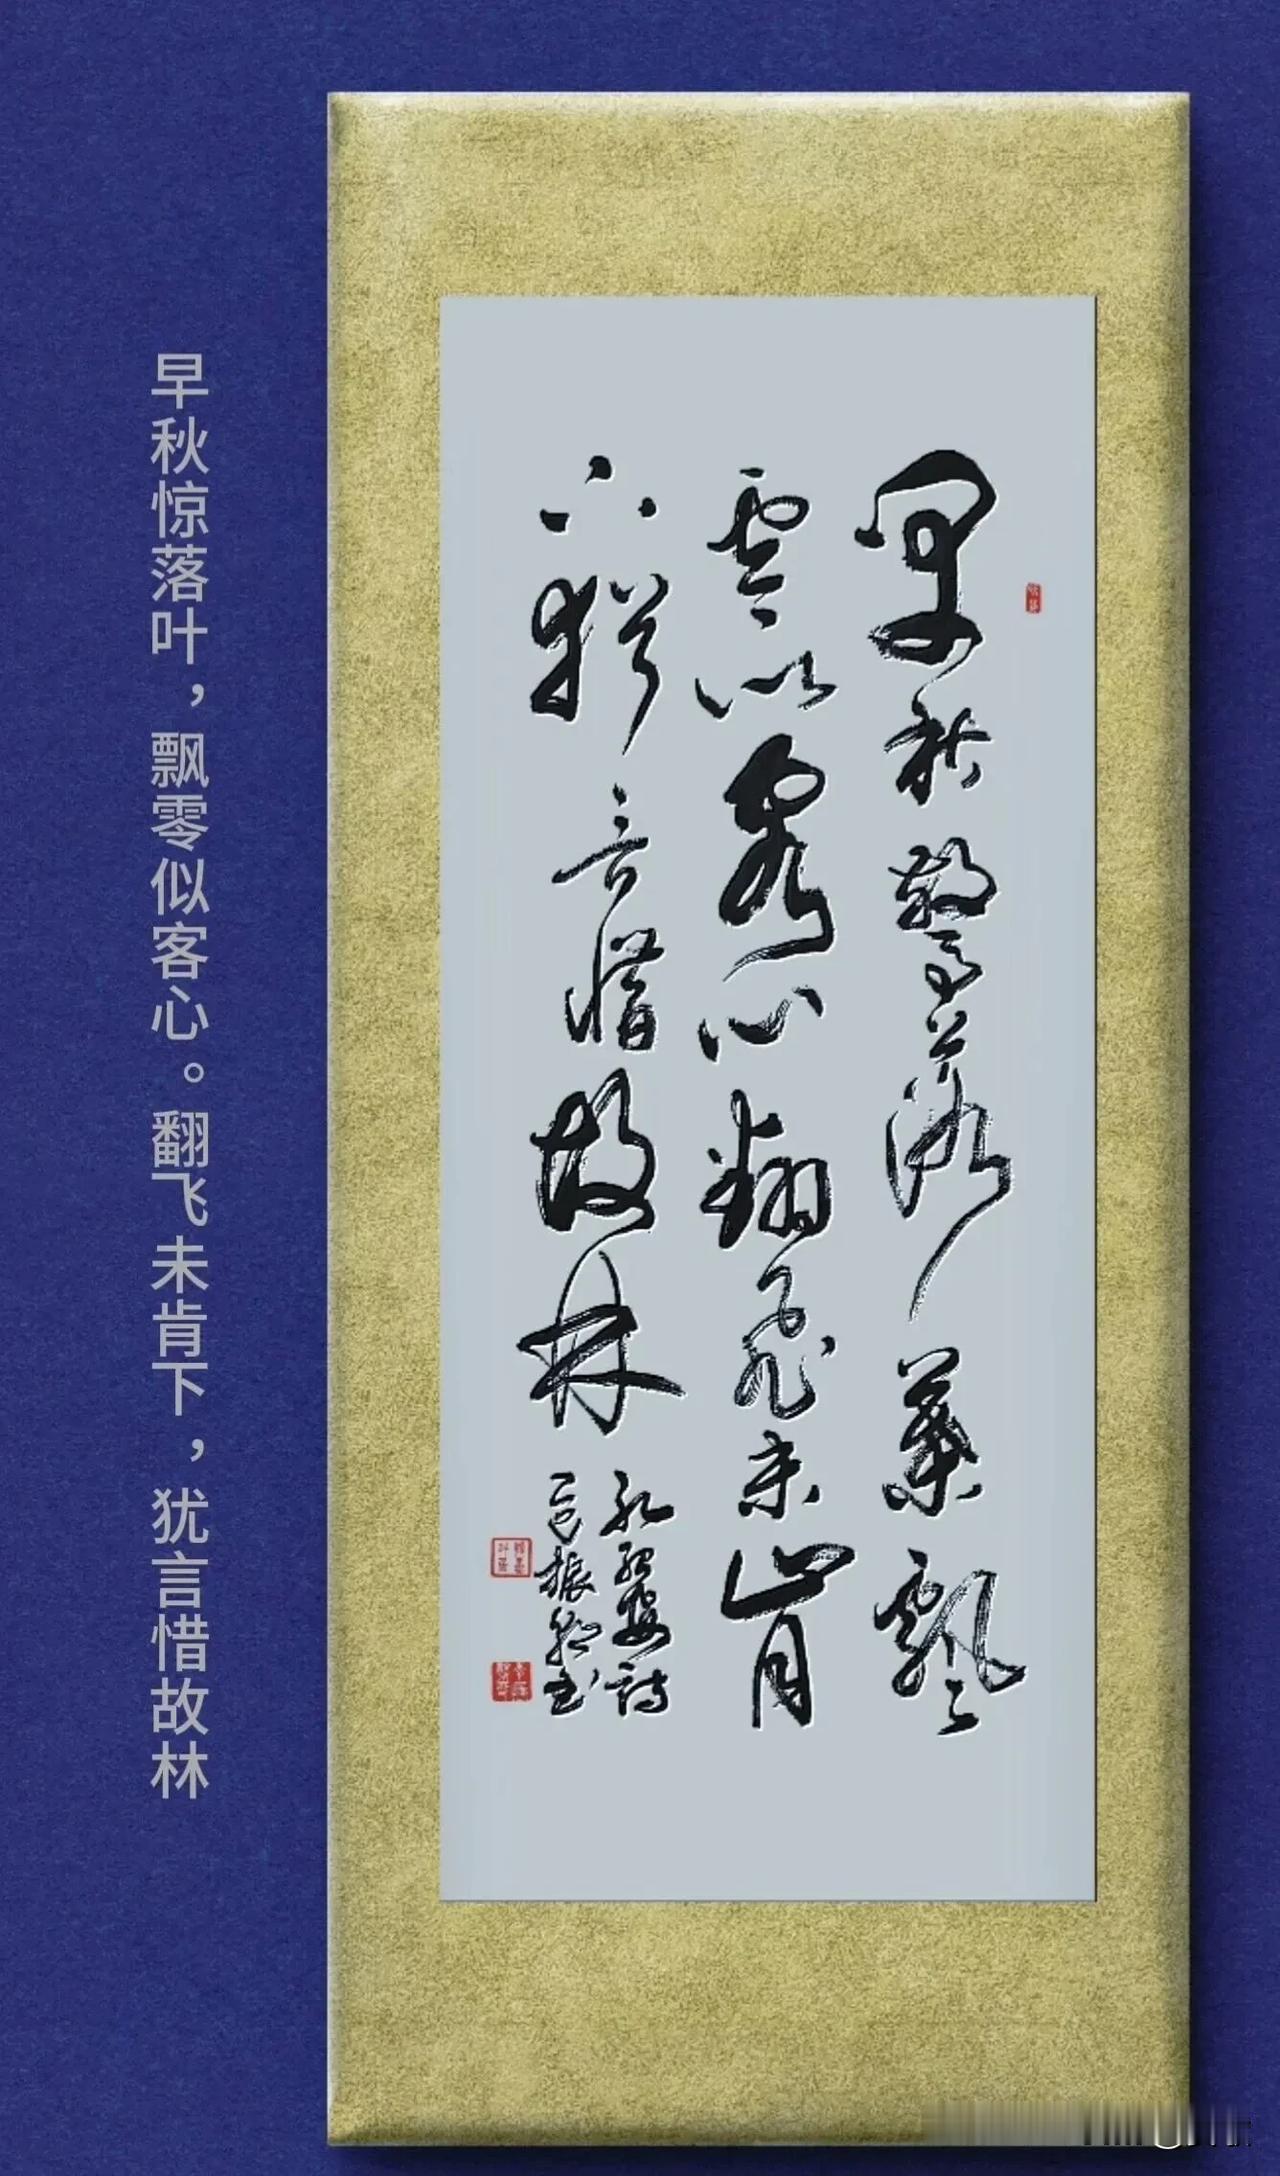 早秋惊落叶，飘零似客心。翻飞未肯下，犹言惜故林
早秋驚落葉飄
零似客心翻飛未肯
下猶言惜故林
孔紹安詩